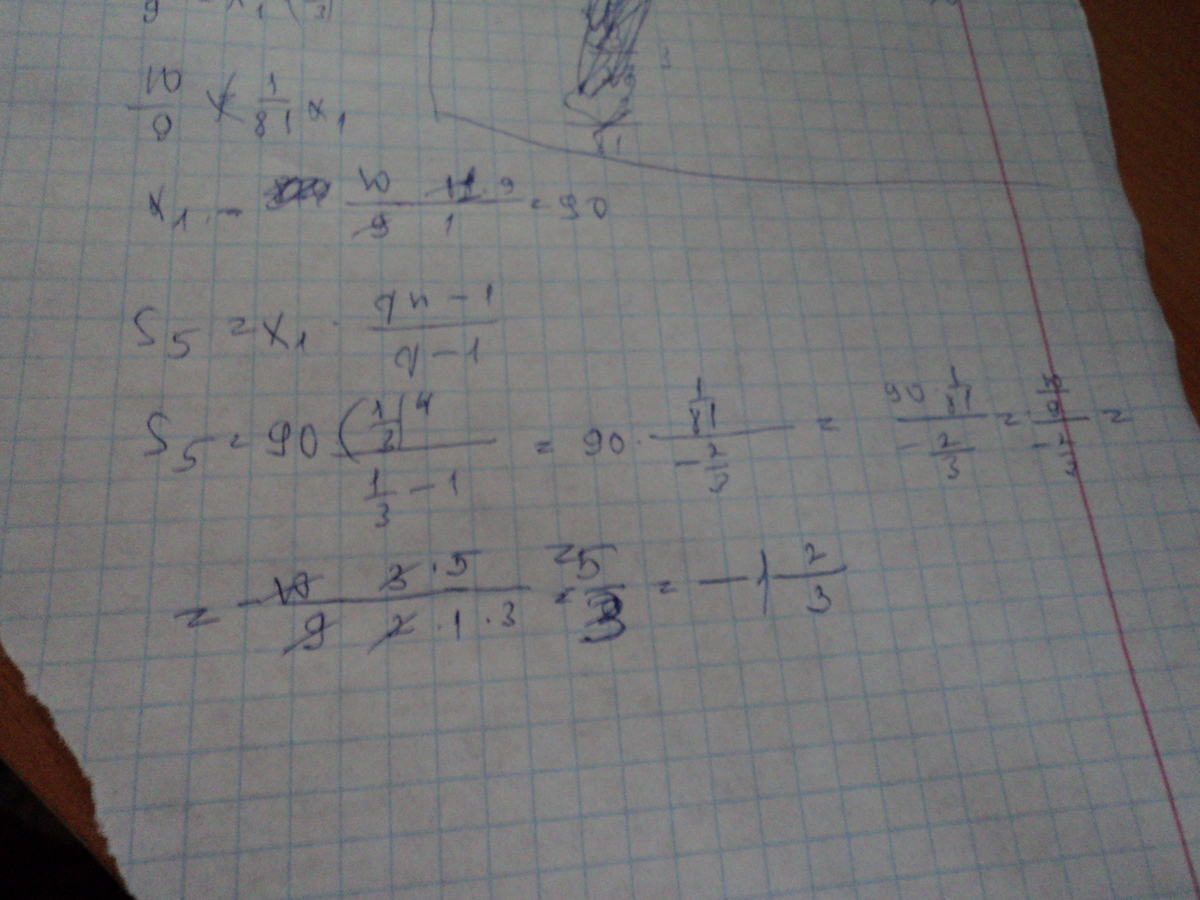 10/9 = 1/81 x₁
x₁ = 10/9 · 81·9/1 = 90
S₅ = x₁ · (qn - 1)/(q - 1)
S₅ = 90 (1/3)⁴/(1/3 - 1) = 90 · (1/81)/(-2/3) = (90 · 1/81)/(-2/3) = (10/9)/(-2/3) =
= - (10 3·5)/(9 2·1·3) = 5/3 = -1 2/3